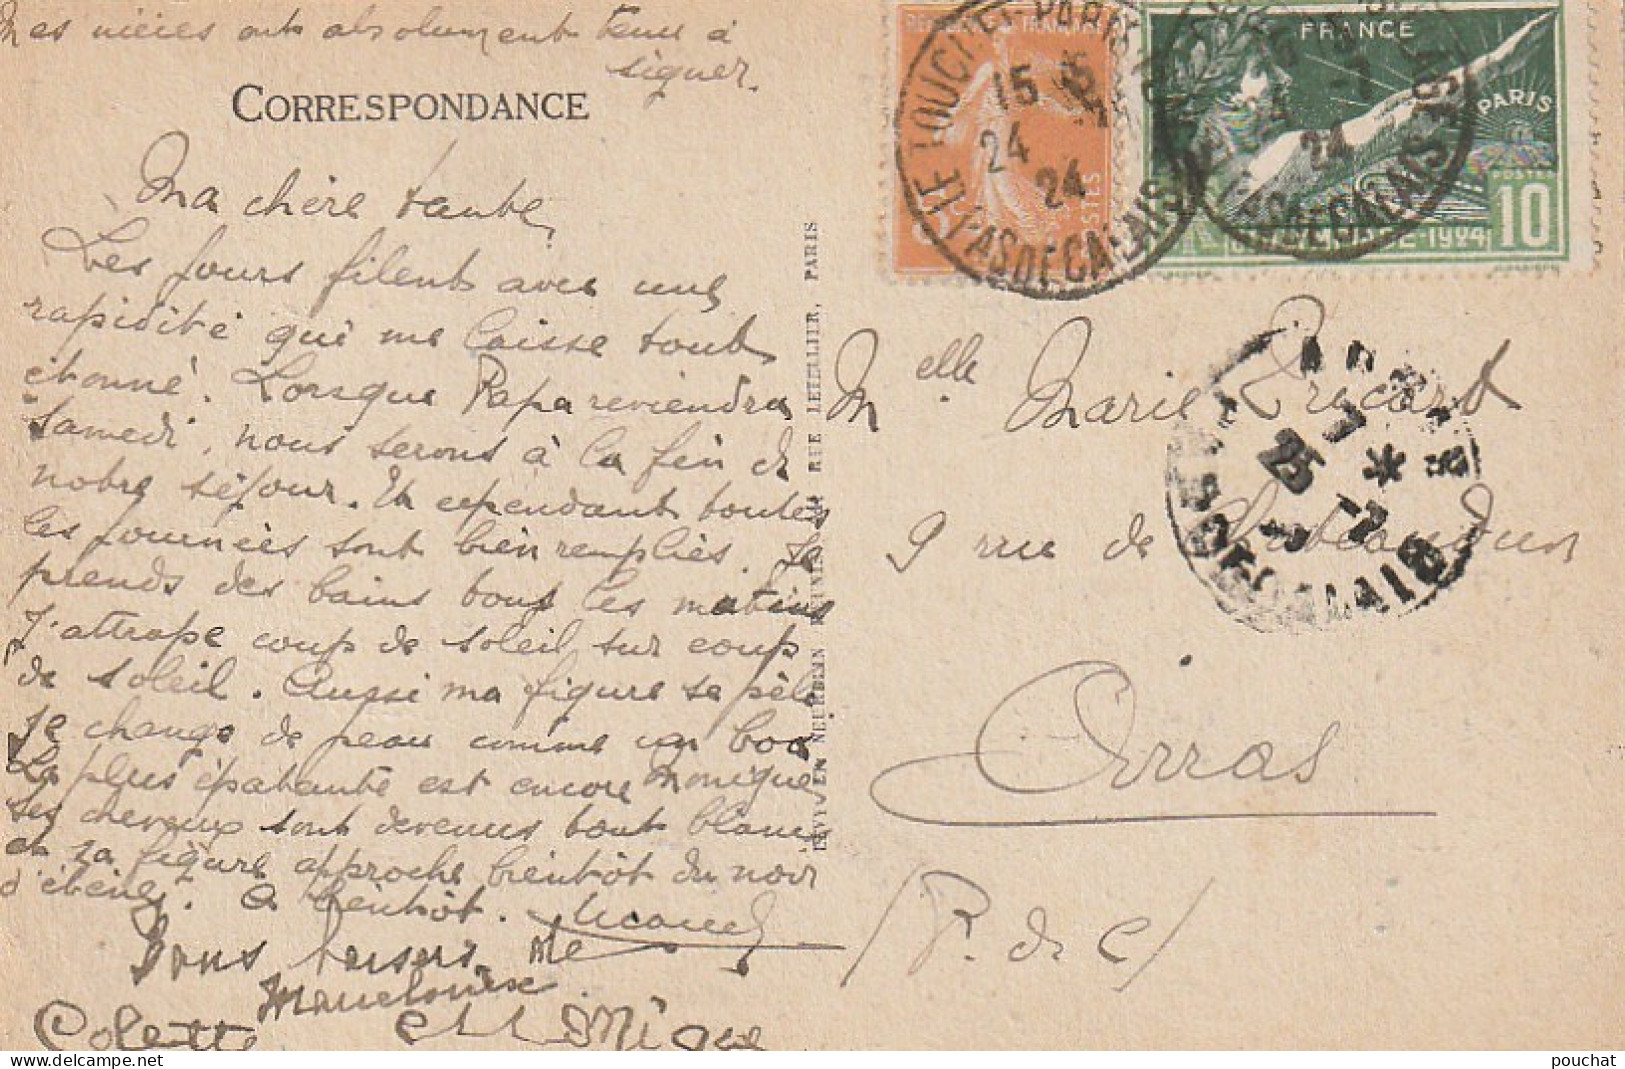 Mes nièces ont absolument tenu à
signer.
CORRESPONDANCE
Ma chère tante,
Les jours filent avec une
rapidité qui me laisse tout
étonné. Lorsque Papa reviendra
samedi, nous serons à la fin de
notre séjour. Et cependant toutes
les journées sont bien remplies. Je
prends des bains tous les matins
J'attrape coup de soleil sur coup
de soleil. Aussi ma figure se pèle
je change de peau comme un boa
La plus épatante est encore Monique
ses cheveux sont devenus tout blancs
et sa figure approche bientôt du noir
d'ébène. A bientôt.
Bons baisers de
Colette et Monique
LÉVY ET NEURDEIN RÉUNIS, 44 RUE LETELLIER, PARIS
RÉPUBLIQUE FRANÇAISE
POSTES
LE TOUQUET-PARIS-PLAGE
15
24
24
PAS DE CALAIS
FRANCE
PARIS
POSTES
10
1924
24
PAS DE CALAIS
Melle Marie
9 rue de Châteaudun
Arras
(P. de C)
ARRAS
7 *
25 -7
PAS DE CALAIS
pouchat